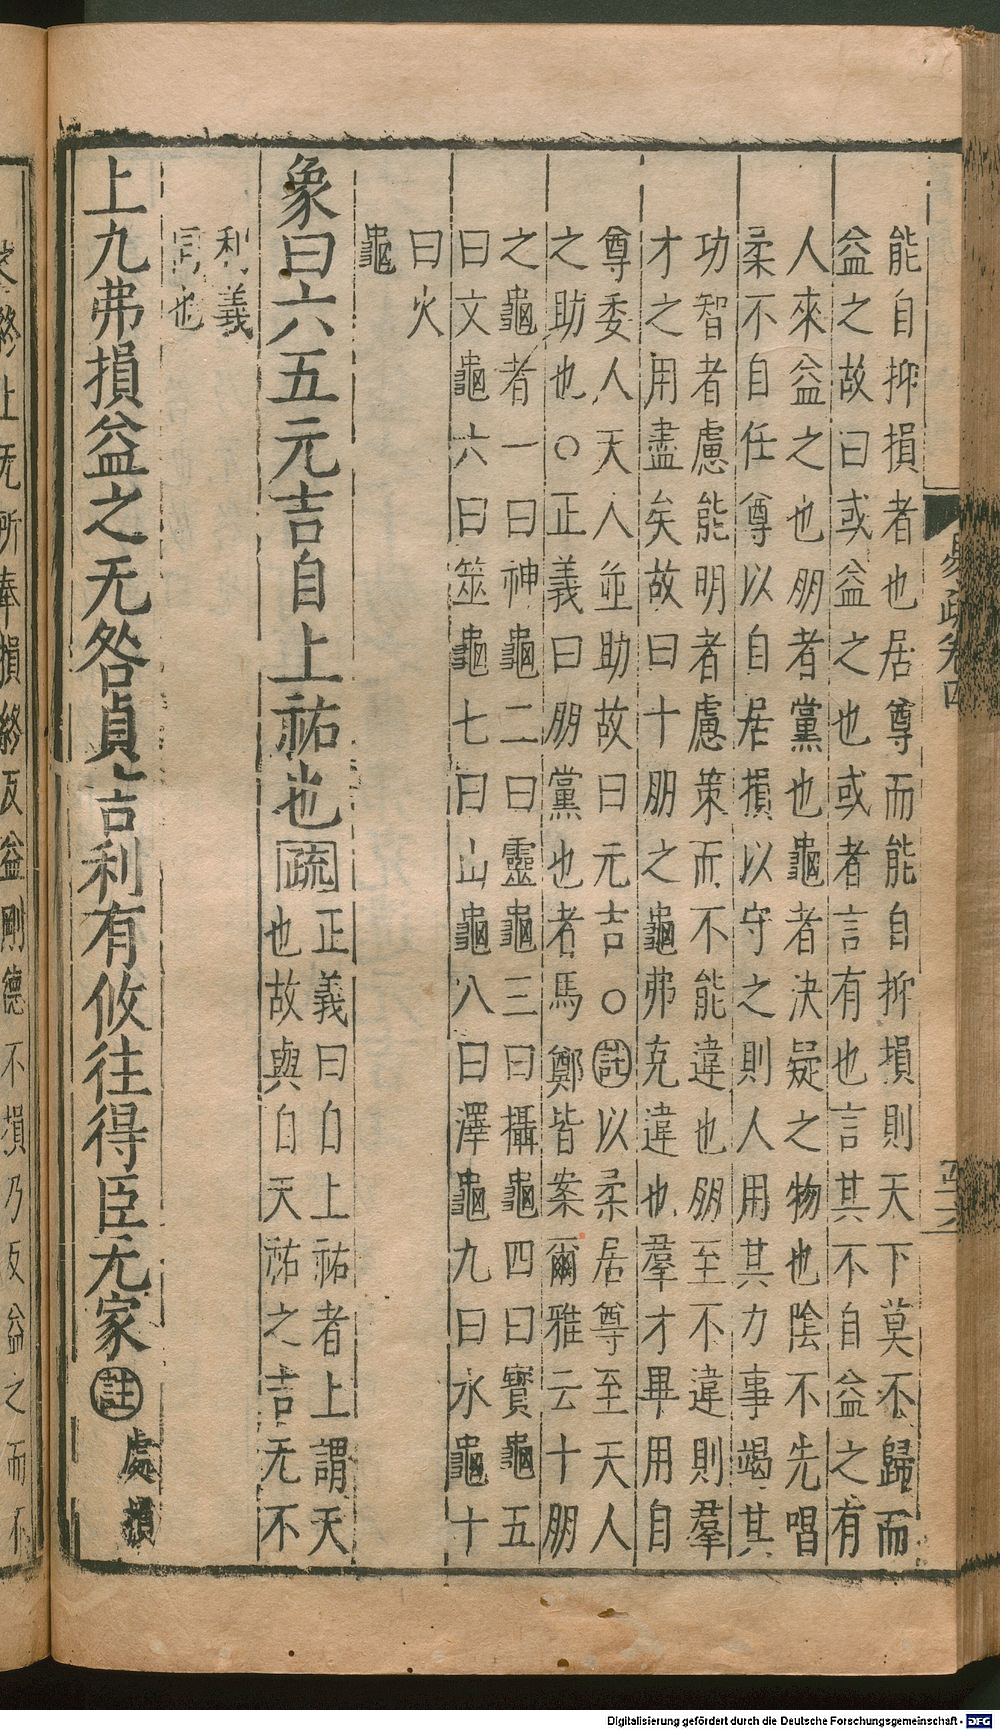 能自抑損者也居尊而能自抑損則天下莫不歸而
益之故曰或益之也或者言有也言其不自益之有
人來益之也朋者黨也龜者決疑之物也陰不先唱
柔不自任尊以自居損以守之則人用其力事竭其
功智者慮能明者慮策而不能違也朋至不違則羣
才之用盡矣故曰十朋之龜弗克違也羣才畢用自
尊委人天人並助故曰元吉○註以柔居尊至天人
之助也○正義曰朋黨也者馬鄭皆案爾雅云十朋
之龜者一曰神龜二曰靈龜三曰攝龜四曰寶龜五
曰文龜六曰筮龜七曰山龜八曰澤龜九曰水龜十
曰火
龜
象曰六五元吉自上祐也疏正義曰自上祐者上謂天
也故與自天祐之吉无不
利義
同也
上九弗損益之无咎貞吉利有攸往得臣无家註處損
易疏卷四
之終上无所奉損終反益剛德不損乃反益之而不
Digitalisierung gefördert durch die Deutsche Forschungsgemeinschaft - DFG